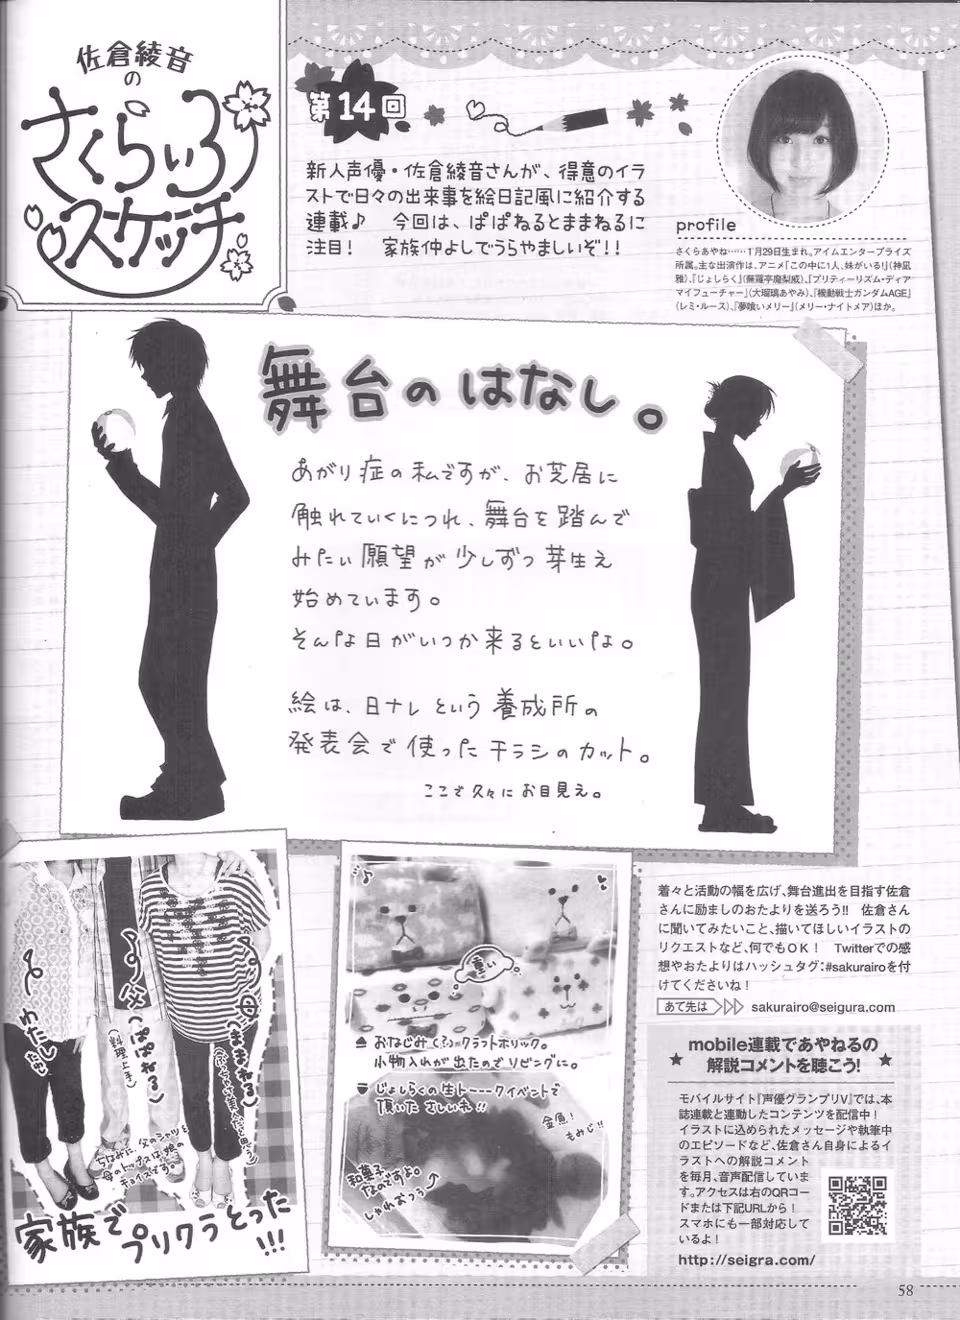 佐倉綾音
の
さくらいろ
スケッチ
第14回
新人声優・佐倉綾音さんが、得意のイラ
ストで日々の出来事を絵日記風に紹介する
連載♪　今回は、ぱぱねるとままねるに
注目!　家族仲よしでうらやましいぞ!!
profile
さくらあやね……1月29日生まれ。アイムエンタープライズ
所属。主な出演作は、アニメ『この中に1人、妹がいる!』(神凪
雅)、『じょしらく』(蕪羅亭魔梨威)、『プリティーリズム・ディア
マイフューチャー』(大瑠璃あやみ)、『機動戦士ガンダムAGE』
(レミ・ルース)、『夢喰いメリー』(メリー・ナイトメア)ほか。
舞台のはなし。
あがり症の私ですが、お芝居に
触れていくにつれ、舞台を踏んで
みたい願望が少しずつ芽生え
始めています。
そんな日がいつか来るといいな。
絵は、日ナレという養成所の
発表会で使ったチラシのカット。
ここで久々にお目見え。
わたし
父
(ぱぱねる)
(料理上手)
母
(ままねる)
ちなみに、父のシャツと
母のトップスは娘の
チョイスです。
家族で
プリクラとった
!!!
重い
おなじみ(?)クラフトホリック。
小物入れが出たのでリビングに。
じょしらくの生トーーークイベントで
頂いた さしいれ!!
金魚!
もみじ!!
和菓子
なのですよ。
しゃれおつう
着々と活動の幅を広げ、舞台進出を目指す佐倉
さんに励ましのおたよりを送ろう!!　佐倉さん
に聞いてみたいこと、描いてほしいイラストの
リクエストなど、何でもOK!　Twitterでの感
想やおたよりはハッシュタグ:#sakurairoを付
けてくださいね!
あて先は sakurairo@seigura.com
mobile連載であやねるの
解説コメントを聴こう!
モバイルサイト『声優グランプリV』では、本
誌連載と連動したコンテンツを配信中!
イラストに込められたメッセージや執筆中
のエピソードなど、佐倉さん自身によるイ
ラストへの解説コメント
を毎月、音声配信していま
す。アクセスは右のQRコー
ドまたは下記URLから!
スマホにも一部対応して
いるよ!
http://seigra.com/
58